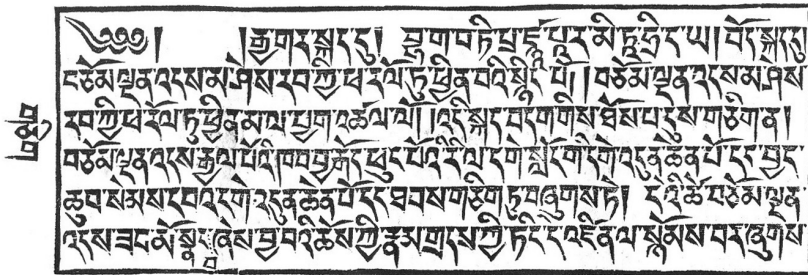 ༄༅༅། །རྒྱ་གར་སྐད་དུ། བྷ་ག་བ་ཏི་པྲ་ཛྙཱ་པཱ་ར་མི་ཏཱ་ཧྲི་ད་ཡ། བོད་སྐད་དུ།
བཅོམ་ལྡན་འདས་མ་ཤེས་རབ་ཀྱི་ཕ་རོལ་ཏུ་ཕྱིན་པའི་སྙིང་པོ། །བཅོམ་ལྡན་འདས་མ་ཤེས་
རབ་ཀྱི་ཕ་རོལ་ཏུ་ཕྱིན་མ་ལ་ཕྱག་འཚལ་ལོ། །འདི་སྐད་བདག་གིས་ཐོས་པ་དུས་གཅིག་ན།
བཅོམ་ལྡན་འདས་རྒྱལ་པོའི་ཁབ་བྱ་རྒོད་ཕུང་པོའི་རི་ལ་དགེ་སློང་གི་དགེ་འདུན་ཆེན་པོ་དང་བྱང་
ཆུབ་སེམས་དཔའི་དགེ་འདུན་ཆེན་པོ་དང་ཐབས་གཅིག་ཏུ་བཞུགས་ཏེ། དེའི་ཚེ་བཅོམ་ལྡན་
འདས་ཟབ་མོ་སྣང་བ་ཞེས་བྱ་བའི་ཆོས་ཀྱི་རྣམ་གྲངས་ཀྱི་ཏིང་ངེ་འཛིན་ལ་སྙོམས་པར་ཞུགས་